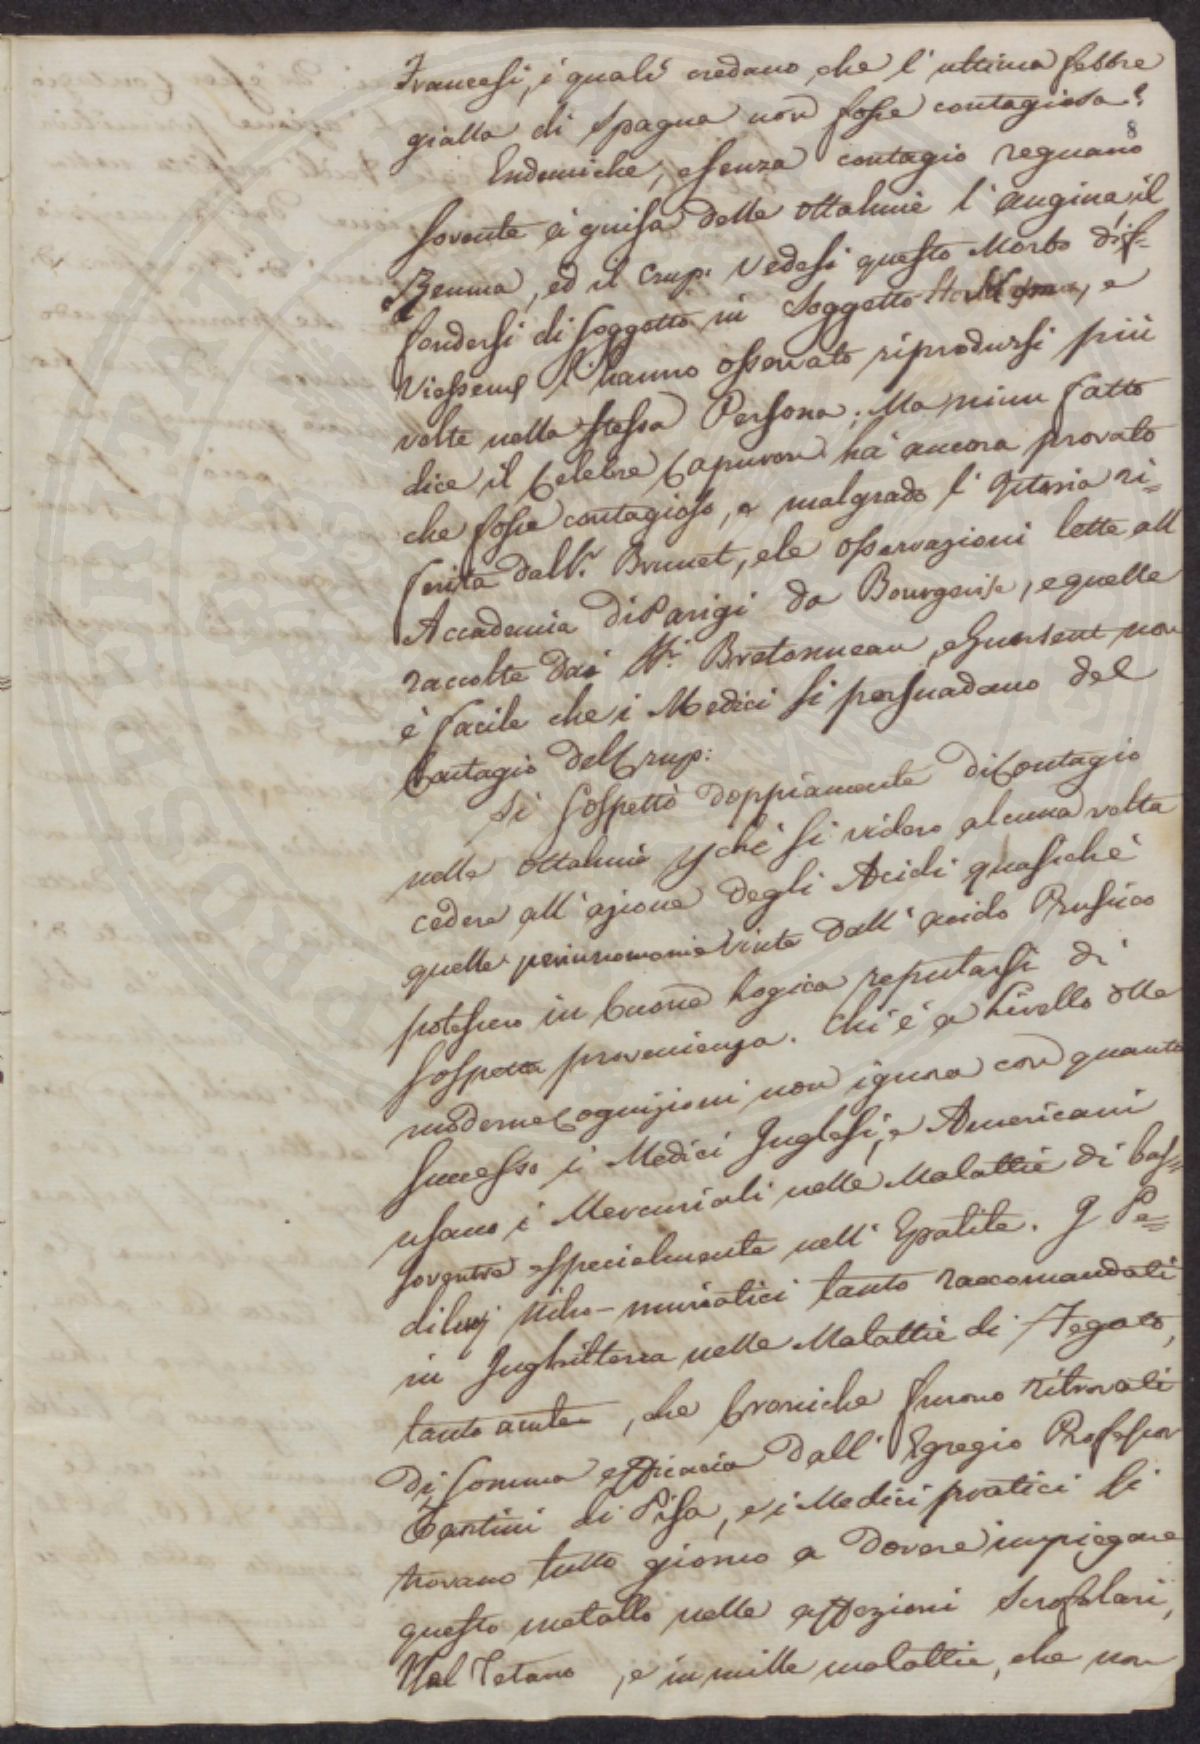 Francesi, i quali credano che l'ultima febbre
gialla di Spagna non fosse contagiosa?
8
Endemiche, e senza contagio regnano
sovente a guisa delle ottalmie l'angina, il
Reuma, ed il Crup: Vedesi questo Morbo dif=
fondersi di soggetto in soggetto, e
Viesseux l'hanno osservato riprodursi più
volte nella stessa Persona; Ma niun fatto
dice il Celebre Capuron hà ancora provato
che fosse contagioso, e malgrado l'Istoria ri=
ferita dal Sr. Brunet, e le osservazioni lette all
Accademia di Parigi da Bourgeoise, e quelle
raccolte dai Sri. Bretonneau, e Guersent non
è facile che i Medici si persuadano del
Contagio del Crup:
Si sospettò doppiamente di Contagio
nelle ottalmie che si videro alcuna volta
cedere all'azione degli Acidi quasichè
quelle peripneumonie vinte dall'acido Prussico
potessero in buona Logica reputarsi di
sospetta provenienza. Chi è a Livello delle
moderne Cognizioni non ignora con quanto
successo i Medici Inglesi, e Americani
usano i Mercuriali nelle Malattie di bas=
soventre specialmente nell'Epatite. I Pe=
diluvj nitro-muriatici tanto raccomandati
in Inghilterra nelle Malattie di Fegato,
tanto acute, che Croniche furono ritrovati
di somma efficacia dall'Egregio Professor
Tantini di Pisa, e i Medici pratici si
trovano tutto giorno a dovere impiegare
questo metallo nelle affezioni Scrofolari,
Nel Tetano, e in mille malattie, che non